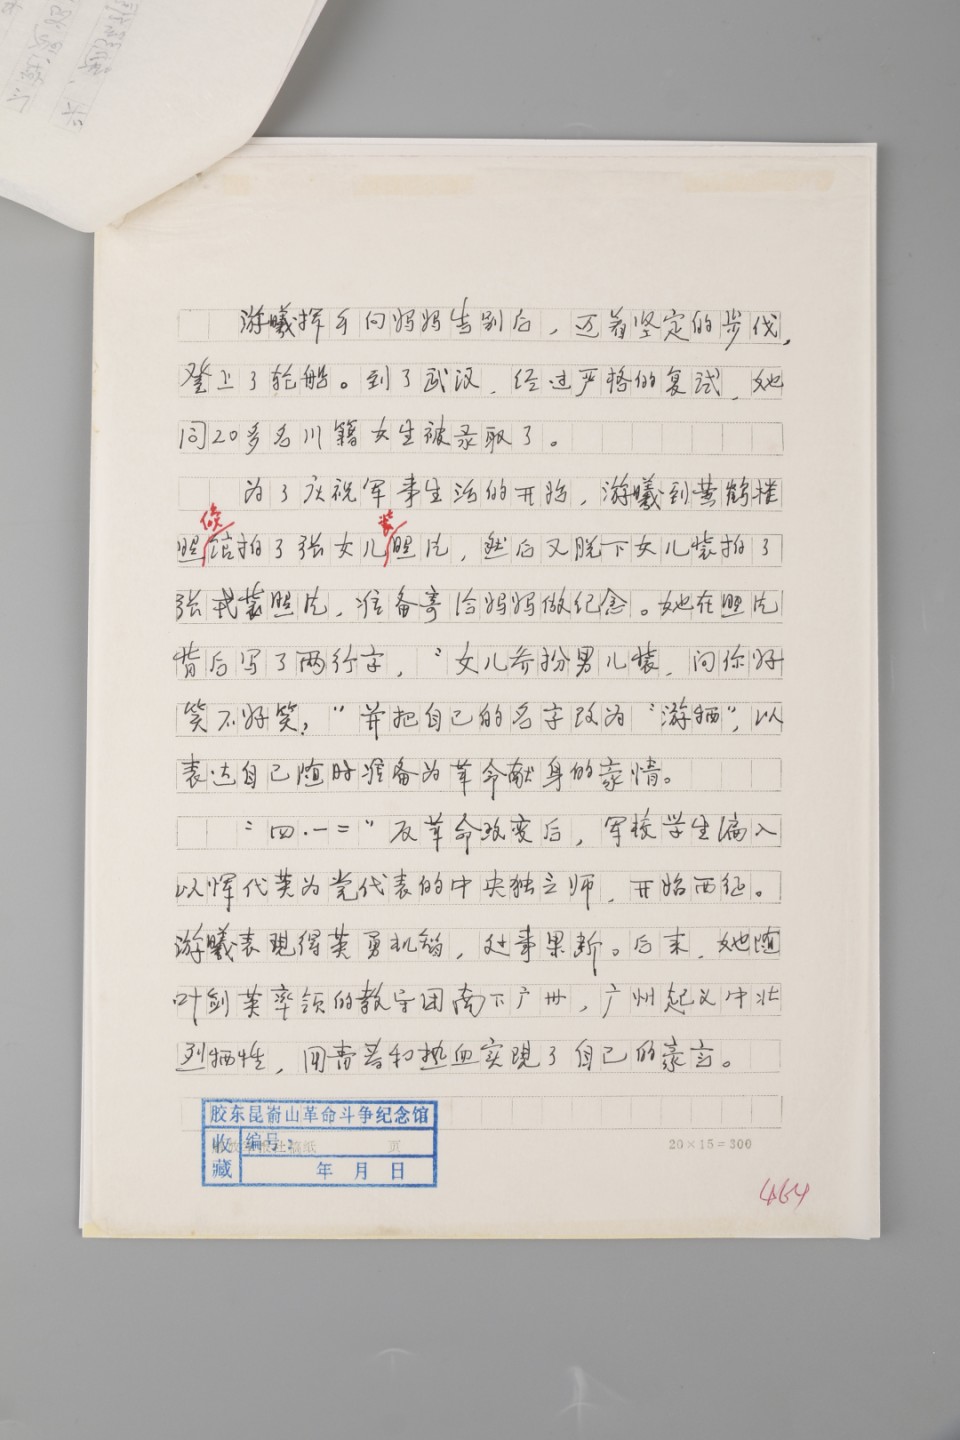 游曦挥手向妈妈告别后，迈着坚定的步伐，
登上了轮船。到了武汉，经过严格的复试，她
同20多名川籍女生被录取了。
为了庆祝军事生活的开始，游曦到黄鹤楼
像 装
照馆拍了张女儿照片，然后又脱下女儿装拍了
张戎装照片，准备寄给妈妈做纪念。她在照片
背后写了两行字，“女儿乔扮男儿装，问你好
笑不好笑？”并把自己的名字改为“游牺”，以
表达自己随时准备为革命献身的豪情。
“四·一二”反革命政变后，军校学生编入
以恽代英为党代表的中央独立师，开始西征。
游曦表现得英勇机智，处事果断。后来，她随
叶剑英率领的教导团南下广州，广州起义中壮
烈牺牲，用青春和热血实现了自己的豪言。
胶东昆嵛山革命斗争纪念馆
收藏 编号：
年 月 日
稿纸 页
20×15=300
464